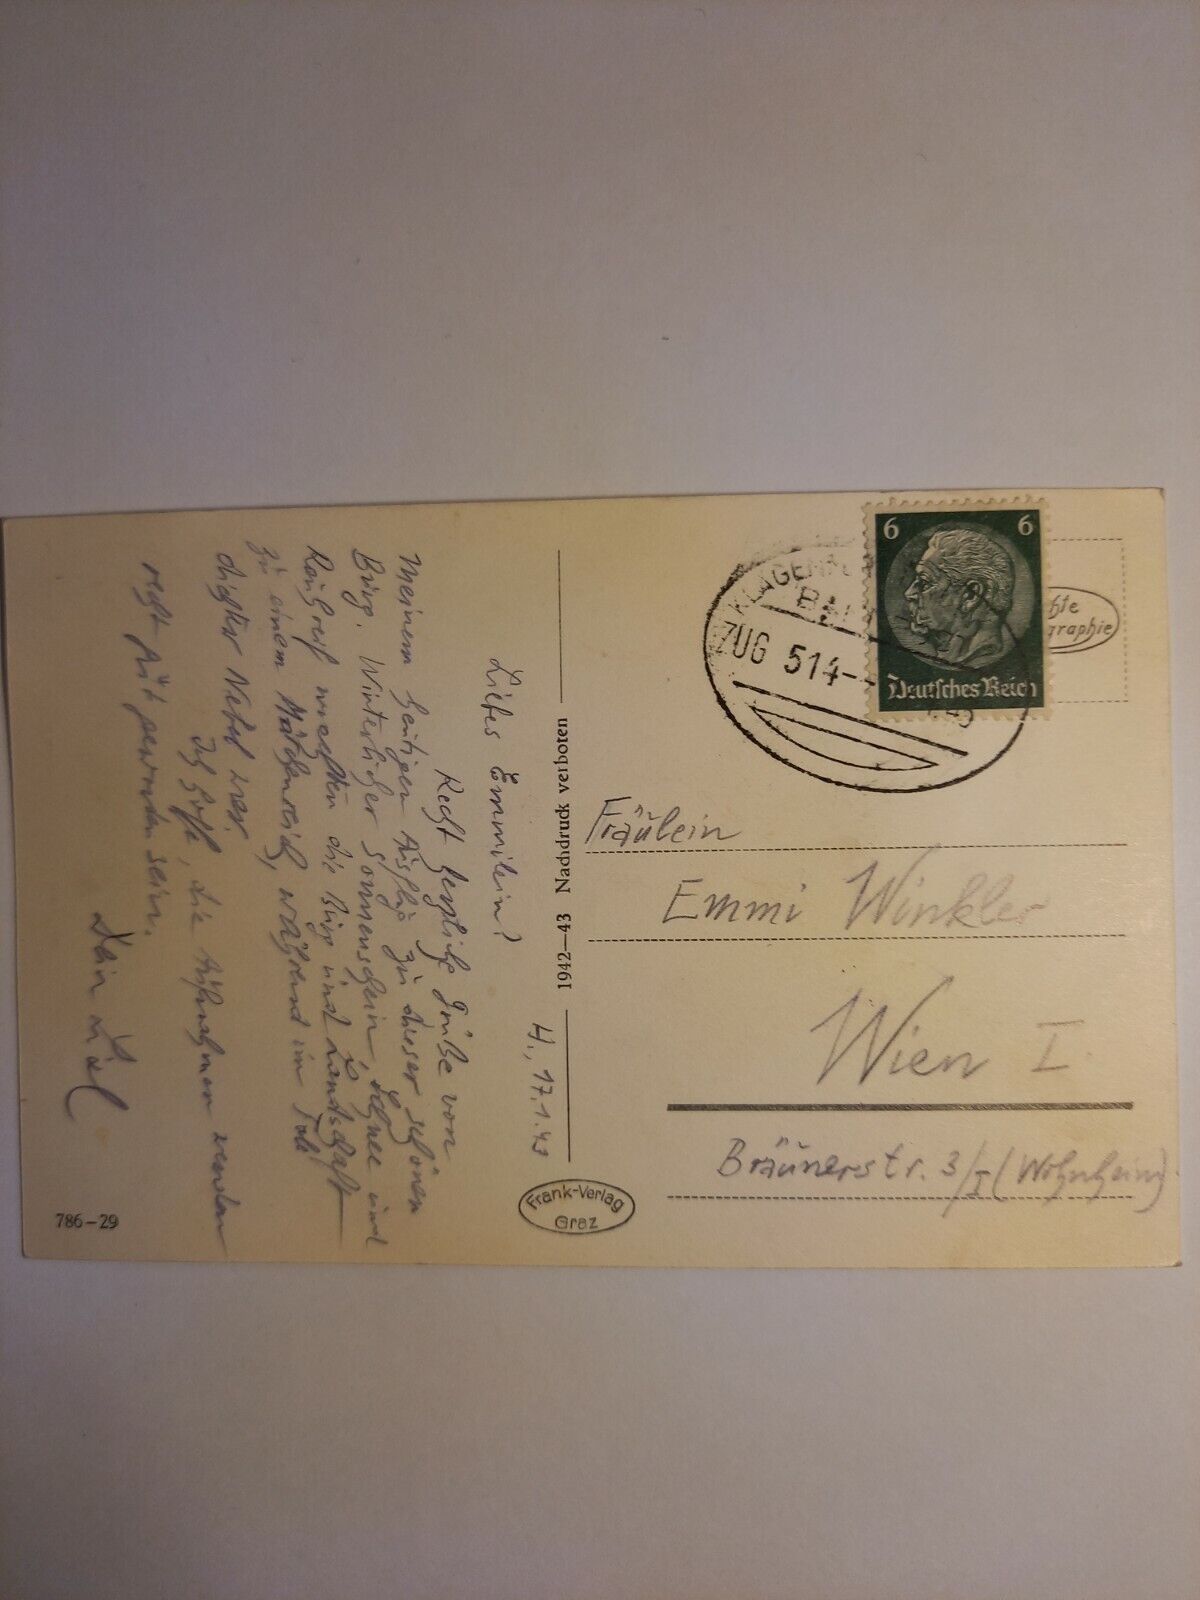 Liebes Emmilein!
Recht herzliche Grüße von
meinem heutigen Ausflug zu dieser schönen
Burg. Winterlicher Sonnenschein, Schnee und
Rauhreif machten die Burg und Landschaft
zu einem Märchenreich, während im Tale
dichter Nebel war.
Ich hoffe, die Aufnahmen werden
recht gut geworden sein.
Dein
H., 17.1.43
786-29
1942-43 Nachdruck verboten
Frank-Verlag
Graz
KLAGENFURT
ZUG 514
6 6
Deutsches Reich
hte
graphie
Fräulein
Emmi Winkler
Wien I.
Bräunerstr. 3/I (Wohnheim)